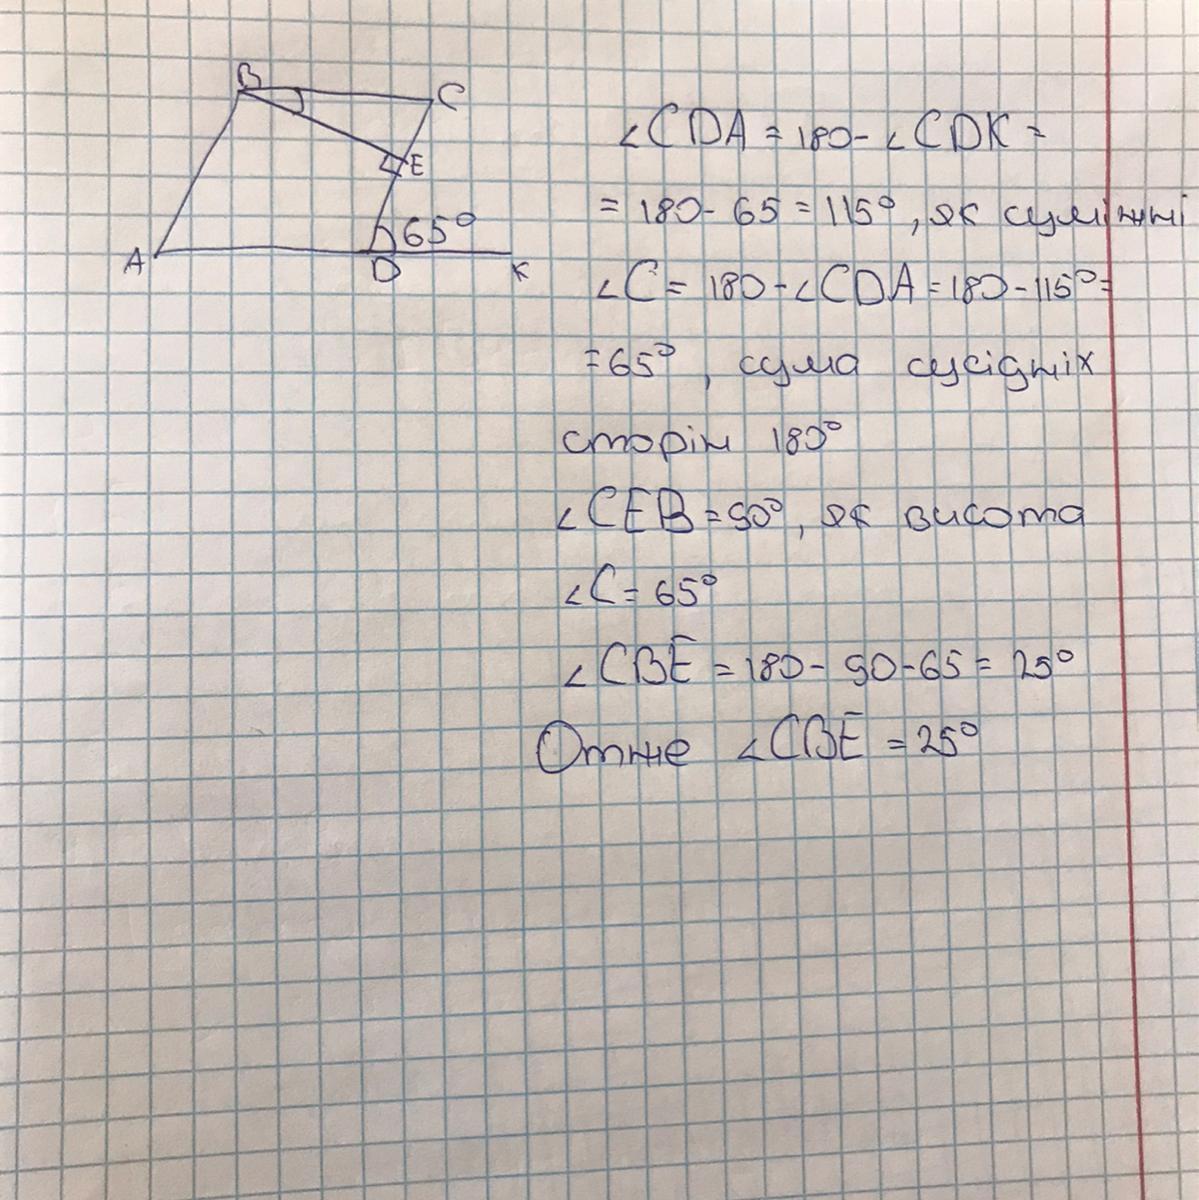 B
C
E
65°
A
D
K
∠CDA = 180 - ∠CDK =
= 180 - 65 = 115°, як суміжні
∠C = 180 - ∠CDA = 180 - 115° =
= 65°, сума сусідніх
сторін 180°
∠CEB = 90°, як висота
∠C = 65°
∠CBE = 180 - 90 - 65 = 25°
Отже ∠CBE = 25°